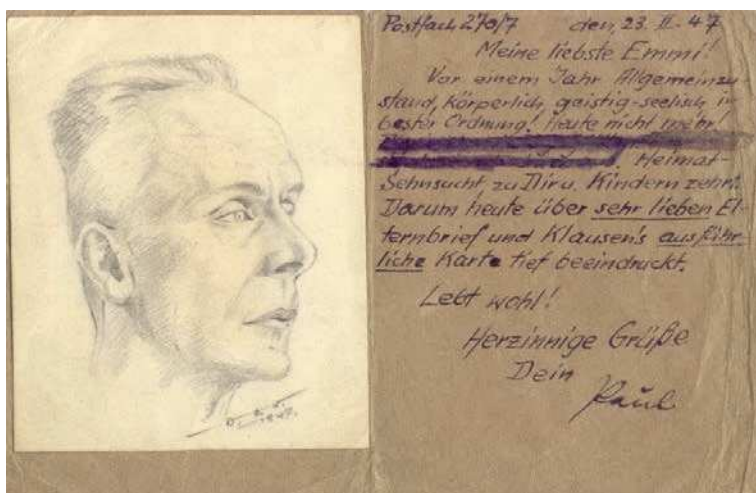 Postfach 270/7 den, 23. II. 47
Meine liebste Emmi!
Vor einem Jahr Allgemeinzu
stand, körperlich, geistig-seelisch in
bester Ordnung! heute nicht mehr!
Heimat-
Sehnsucht, zu Dir u. Kindern zehrt.
Darum heute über sehr lieben El-
ternbrief und Klausen's ausführ-
liche Karte tief beeindruckt.
Lebt wohl!
Herzinnige Grüße
Dein
Paul